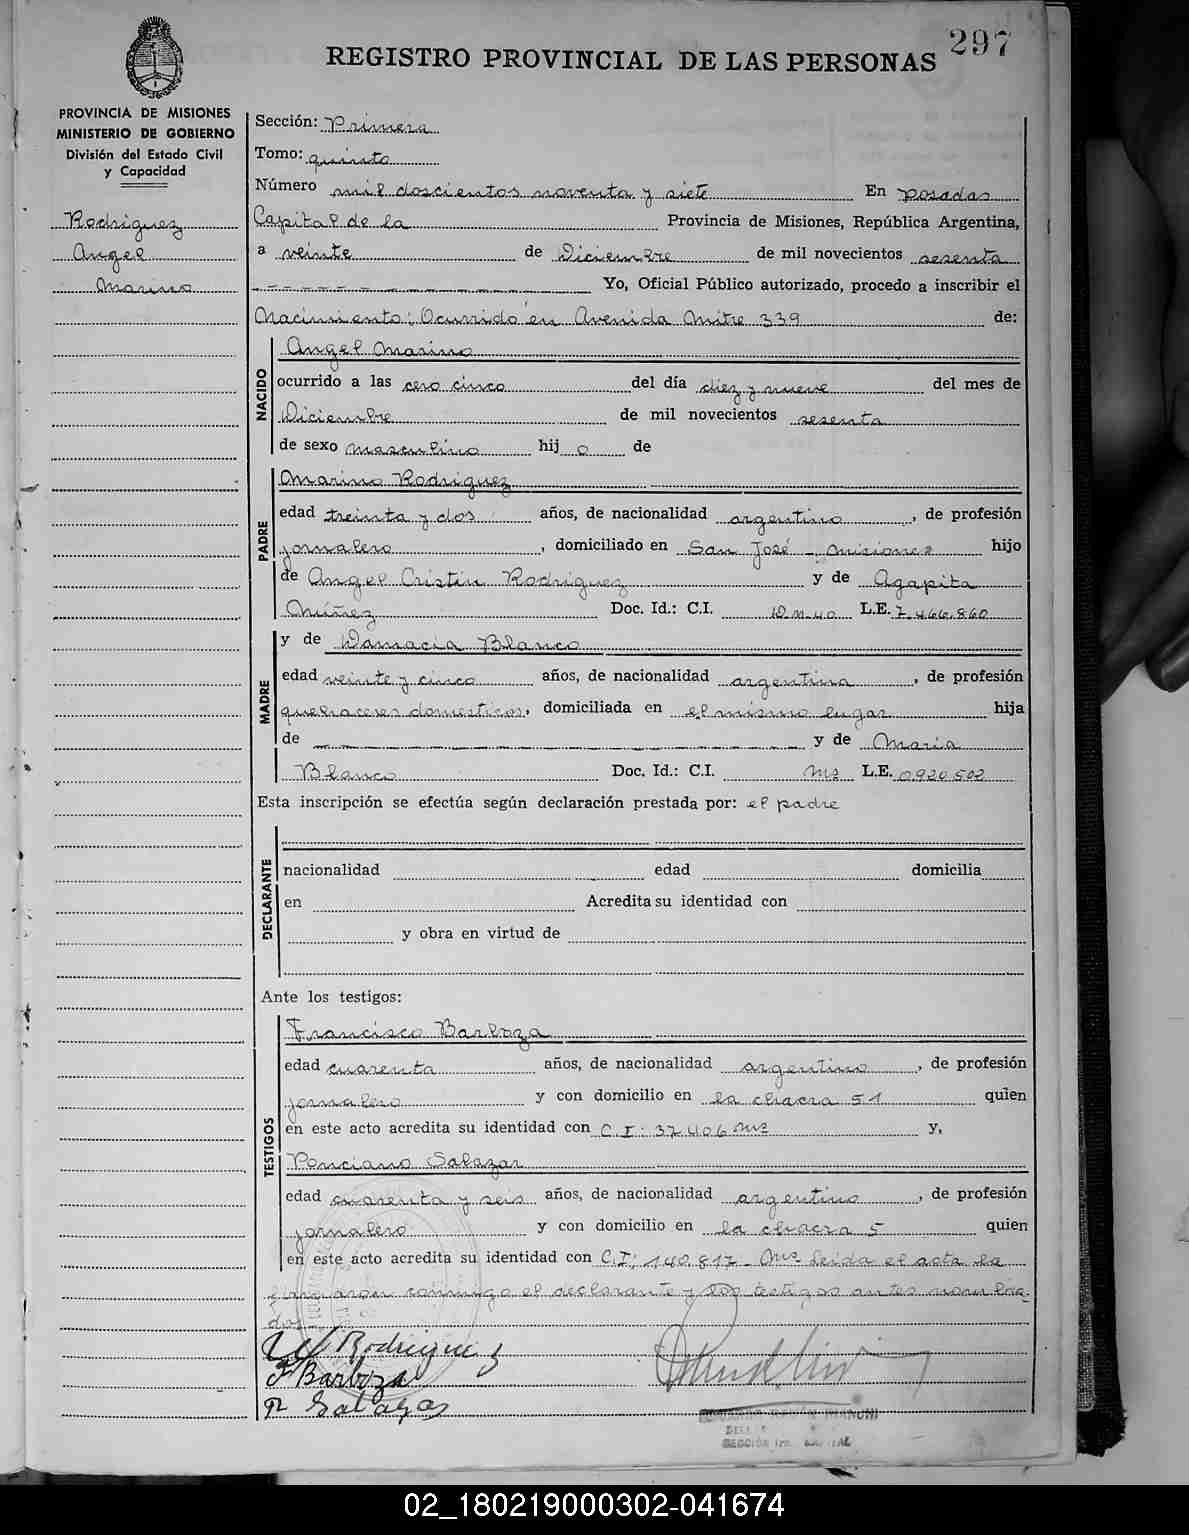 297
REGISTRO PROVINCIAL DE LAS PERSONAS
PROVINCIA DE MISIONES
MINISTERIO DE GOBIERNO
División del Estado Civil
y Capacidad
Rodriguez
Angel
Marino
Sección: Primera
Tomo: quinto
Número mil doscientos noventa y siete En Posadas
Capital de la Provincia de Misiones, República Argentina,
a veinte de Diciembre de mil novecientos sesenta
Yo, Oficial Público autorizado, procedo a inscribir el
Nacimiento: Ocurrido en Avenida Mitre 339 de:
NACIDO
Angel Marino
ocurrido a las cero cinco del día diez y nueve del mes de
Diciembre de mil novecientos sesenta
de sexo masculino hij o de
PADRE
Marino Rodriguez
edad treinta y dos años, de nacionalidad argentino, de profesión
jornalero, domiciliado en San José - Misiones hijo
de Angel Cristin Rodriguez y de Agapita
Núñez Doc. Id.: C.I. D.M.40 L.E. 7.466.860
MADRE
y de Damacia Blanco
edad veinte y cinco años, de nacionalidad argentina, de profesión
quehaceres domesticos, domiciliada en el mismo lugar hija
de y de Maria
Blanco Doc. Id.: C.I. Ms L.E. 0920502
Esta inscripción se efectúa según declaración prestada por: el padre
DECLARANTE
nacionalidad edad domicilia
en Acredita su identidad con
y obra en virtud de
Ante los testigos:
TESTIGOS
Francisco Barboza
edad cuarenta años, de nacionalidad argentino, de profesión
jornalero y con domicilio en la chacra 51 quien
en este acto acredita su identidad con C.I: 37406 Ms y,
Ponciano Salazar
edad cuarenta y seis años, de nacionalidad argentino, de profesión
jornalero y con domicilio en la chacra 5 quien
en este acto acredita su identidad con C.I; 140.817- Ms Leida el acta la
firmaron conmigo el declarante y los testigos antes nombra-
dos
Rodriguez
F Barboza
P Salazar
SECCIÓN CAPITAL
02_180219000302-041674